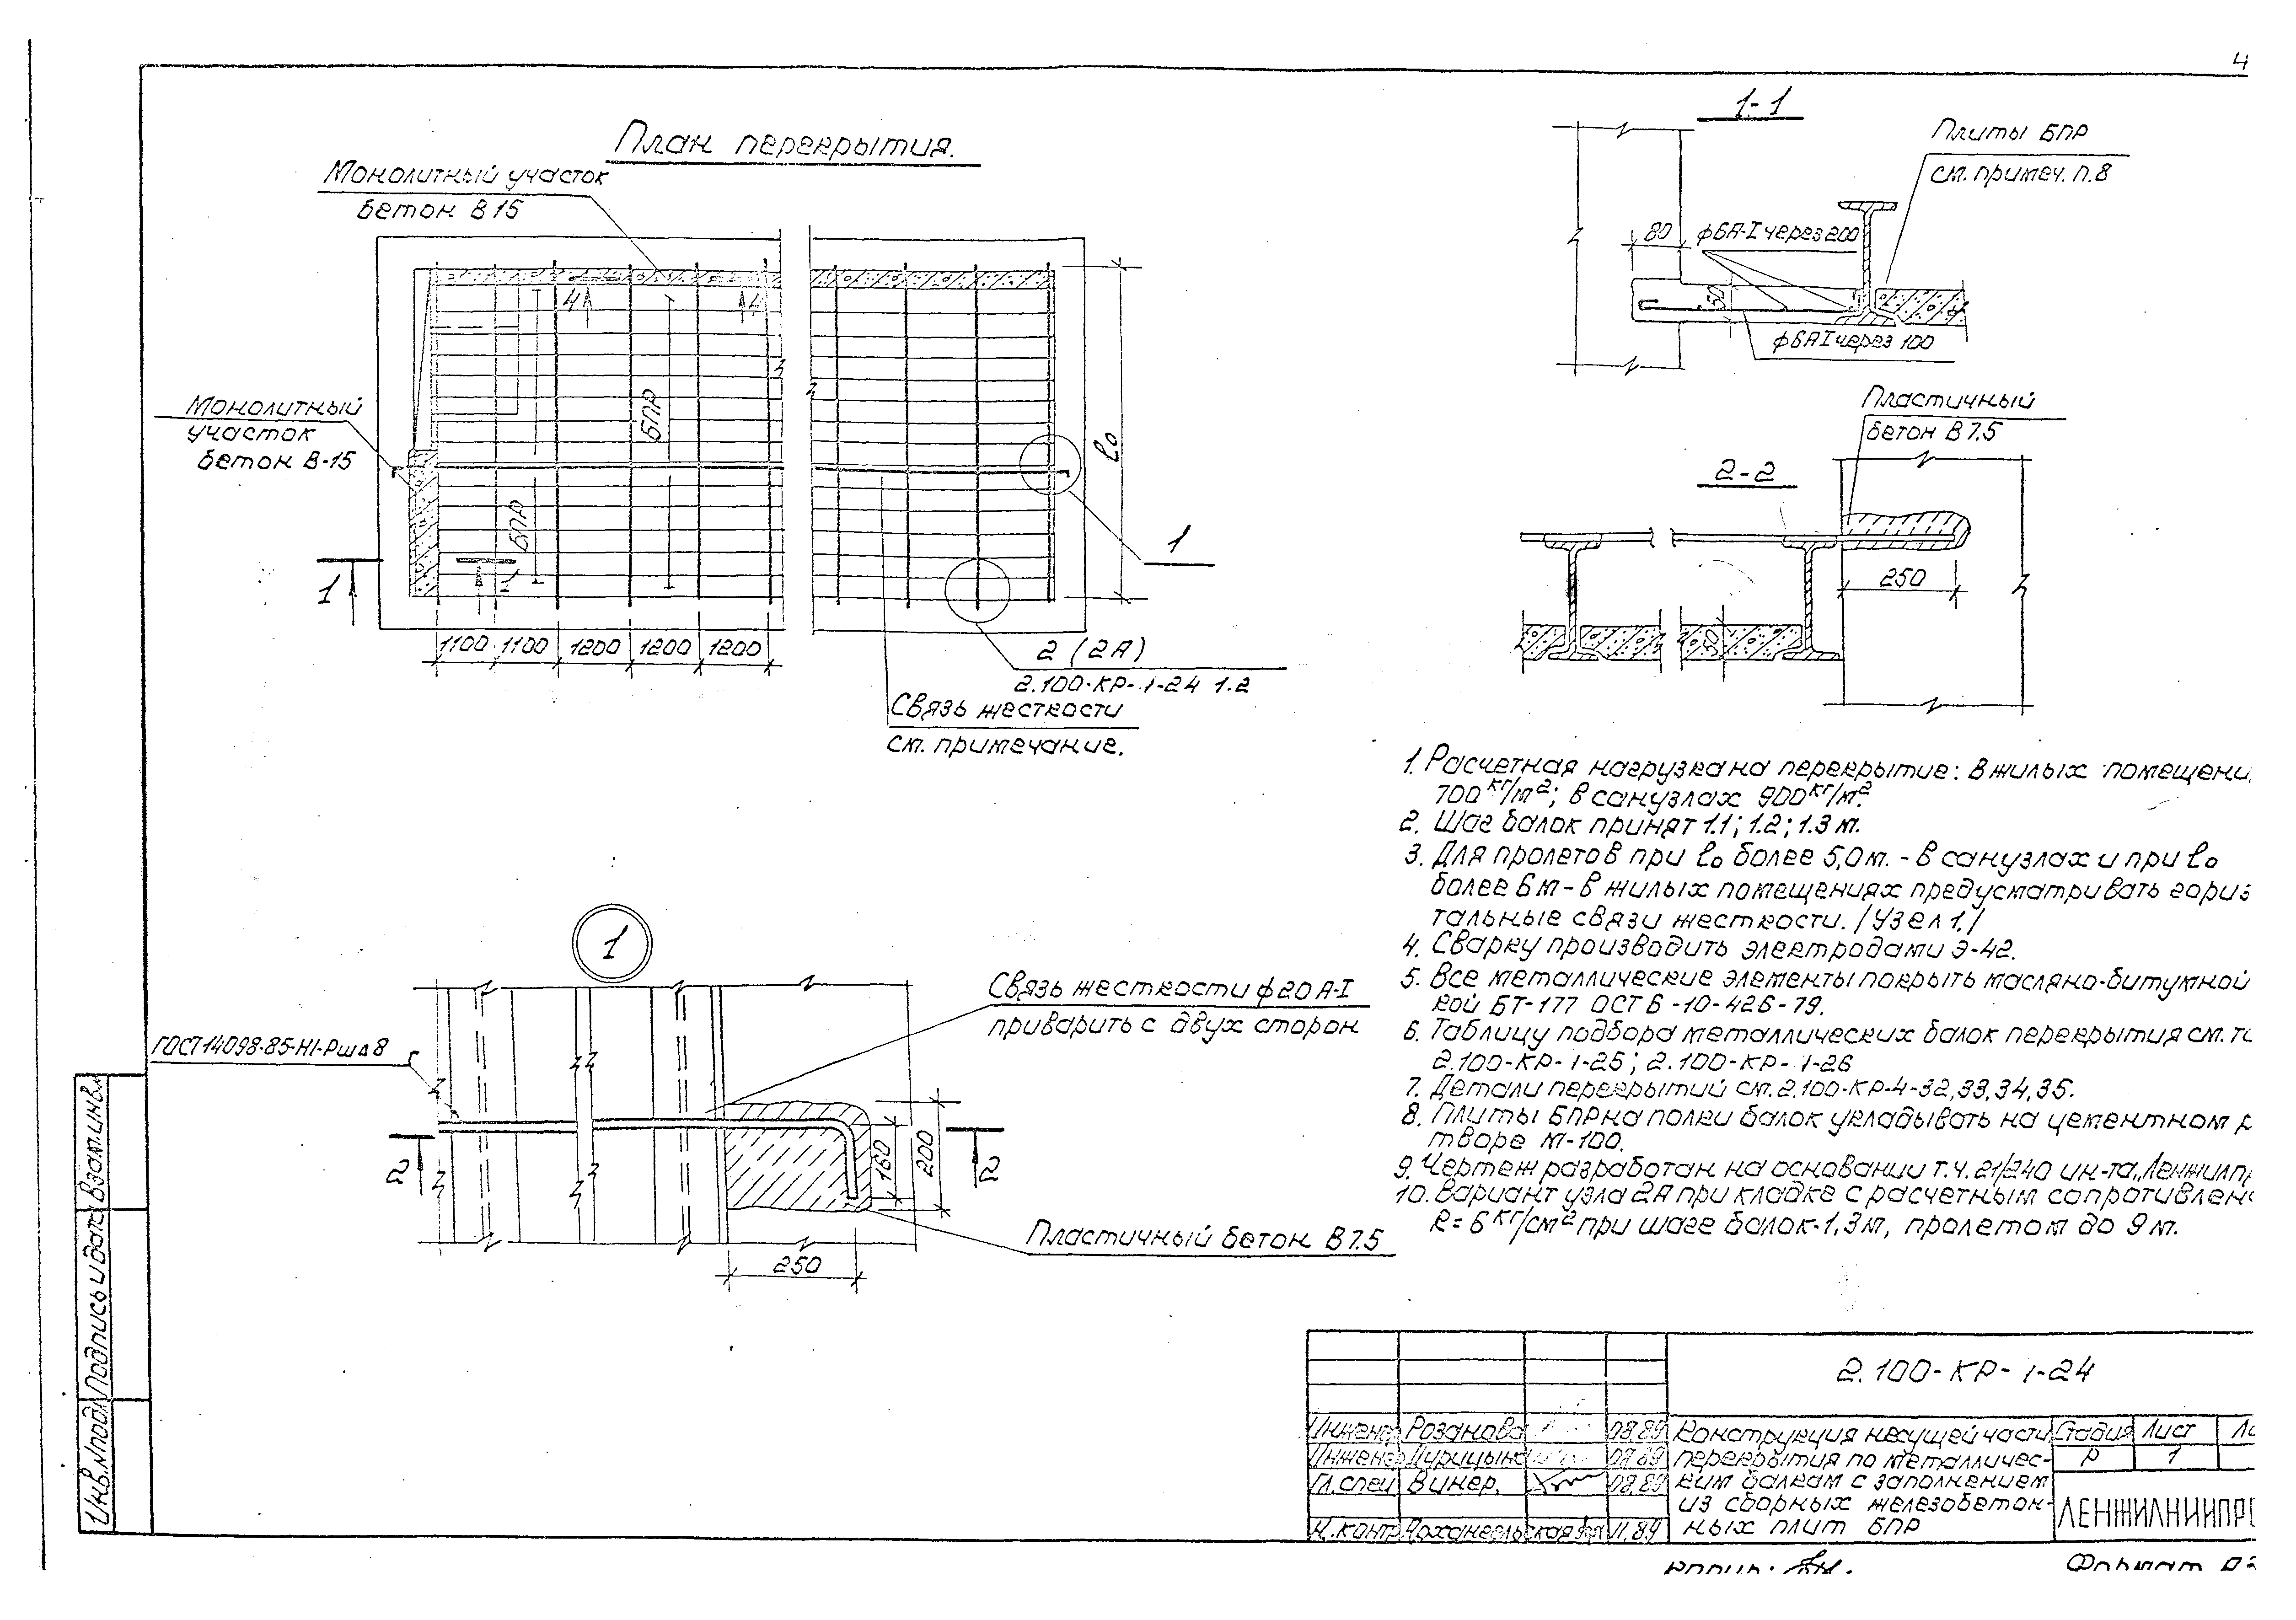 4
План перекрытия.
Монолитный участок
бетон В15
Монолитный
участок
бетон В-15
4
4
БПР
БПР
l₀
1
1
1
1100
1100
1200
1200
1200
2 (2А)
2.100-КР-1-24 1.2
Связь жесткости
см. примечание.
1-1
Плиты БПР
см. примеч. п.8
80
ф6А-I через 200
50
ф6АI через 100
Пластичный
бетон В 7.5
2-2
250
50
1
Связь жесткости ф20 А-I
приварить с двух сторон
ГОСТ 14098-85-Н1-Рш Δ 8
2
2
160
200
Пластичный бетон В 7.5
250
1. Расчетная нагрузка на перекрытие: в жилых помещени
700 кг/м²; в санузлах 900 кг/м².
2. Шаг балок принят 1.1; 1.2; 1.3 м.
3. Для пролетов при l₀ более 5,0 м. - в санузлах и при l₀
более 6 м - в жилых помещениях предусматривать гориз
тальные связи жесткости. /Узел 1./
4. Сварку производить электродами Э-42.
5. Все металлические элементы покрыть масляно-битумной
кой БТ-177 ОСТ 6-10-426-79.
6. Таблицу подбора металлических балок перекрытия см. т
2.100-КР-1-25; 2.100-КР-1-26
7. Детали перекрытий см. 2.100-КР-4-32,33,34,35.
8. Плиты БПР на полки балок укладывать на цементном р
творе М-100.
9. Чертеж разработан на основании т.ч. 21/240 ин-та „Ленжилпр
10. Вариант узла 2А при кладке с расчетным сопротивлен
R = 6 кг/см² при шаге балок-1,3м, пролетом до 9 м.
2.100-КР-1-24
Инженер Розанова 08.89
Инженер 08.89
Гл. спец Винер. 08.89
Н. контр 11.89
Конструкция несущей части
перекрытия по металличес-
ким балкам с заполнением
из сборных железобетон-
ных плит БПР
Стадия Лист
Р 1
ЛЕНЖИЛНИИПРО
Формат
Взам.инв.
Подпись и дата
Инв.№подл